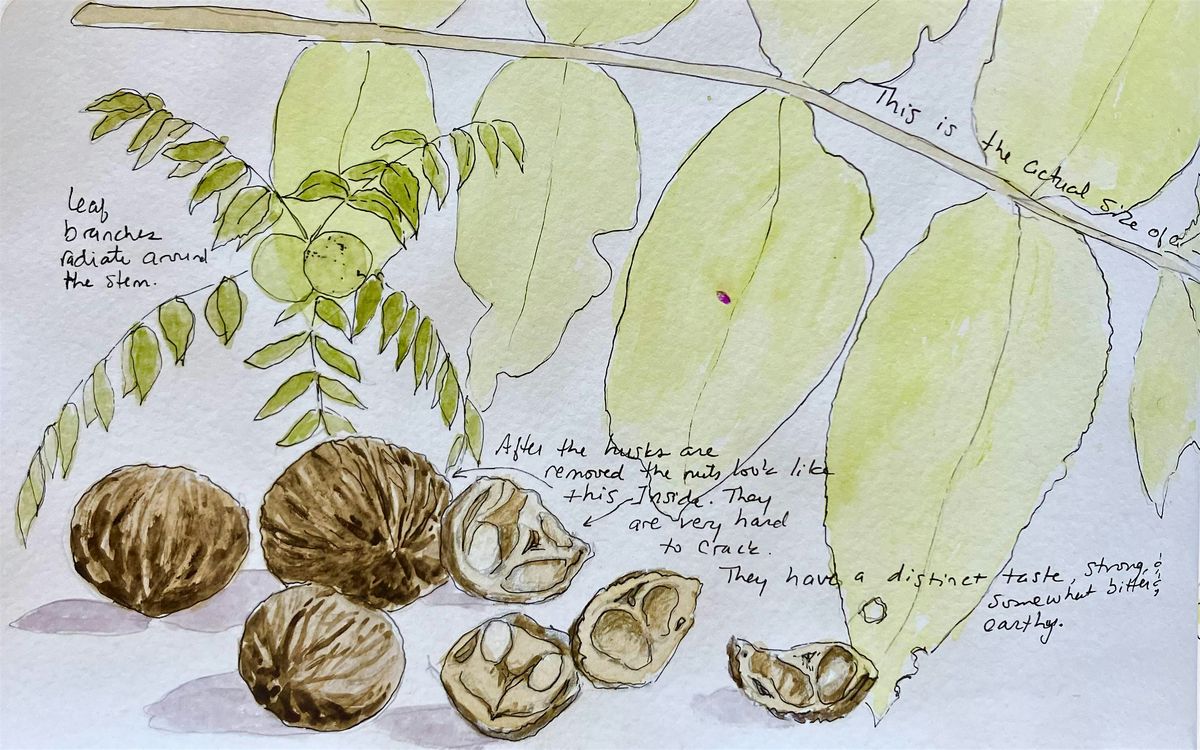 This is the actual size of a
Leaf
branches
radiate around
the stem.
After the husks are
removed the nuts look like
this Inside. They
are very hard
to crack.
They have a distinct taste, strong,
somewhat bitter,
earthy.